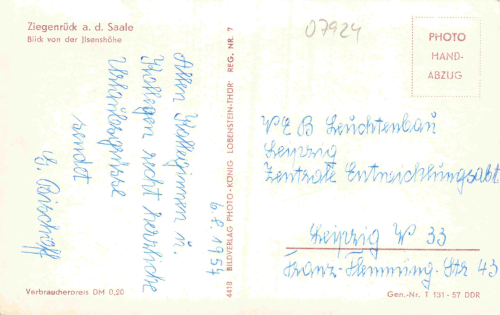 Ziegenrück a. d. Saale
Blick von der Jlsenshöhe
07924
PHOTO
HAND-
ABZUG
6.8.1957
Allen Kolleginnen u.
Kollegen recht herzliche
Urlaubsgrüsse
sendet
G. Bischoff
4418 BILDVERLAG PHOTO-KÖNIG LOBENSTEIN-THÜR REG. NR. 7
VEB Leuchtenbau
Leipzig
Zentrale Entwicklungsabt.
Leipzig W 33
Franz-Flemming-Str 43
Verbraucherpreis DM 0,20
Gen.-Nr. T 131 - 57 DDR